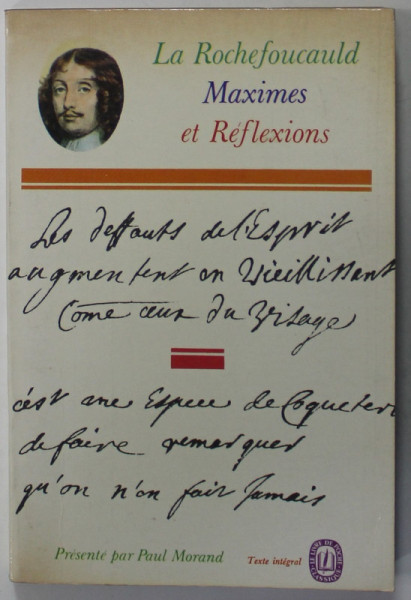 La Rochefoucauld
Maximes
et Réflexions
Les deffauts de l'Esprit
augmentent en Vieillissant
Come ceux du Visage
c'est une Espece de Coqueteri
de faire remarquer
qu'on n'en fait Jamais
Présenté par Paul Morand
Texte intégral
LE LIVRE DE POCHE
CLASSIQUE